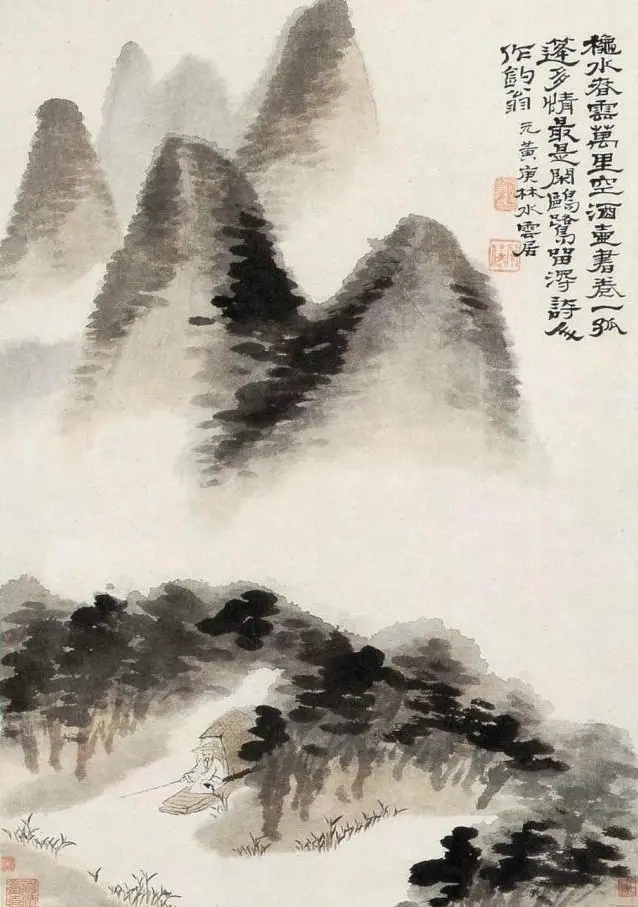 水春雲萬里空酒壺書卷一孤
蓬多情最是閑鷗鷺留得詩人
作釣翁 元黃庚林水雲居